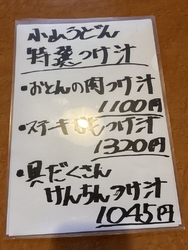 小山うどん
特選つけ汁
・おとんの肉つけ汁
1100円
・ステーキもつけ汁
1320円
・具だくさん
けんちんつけ汁
1045円